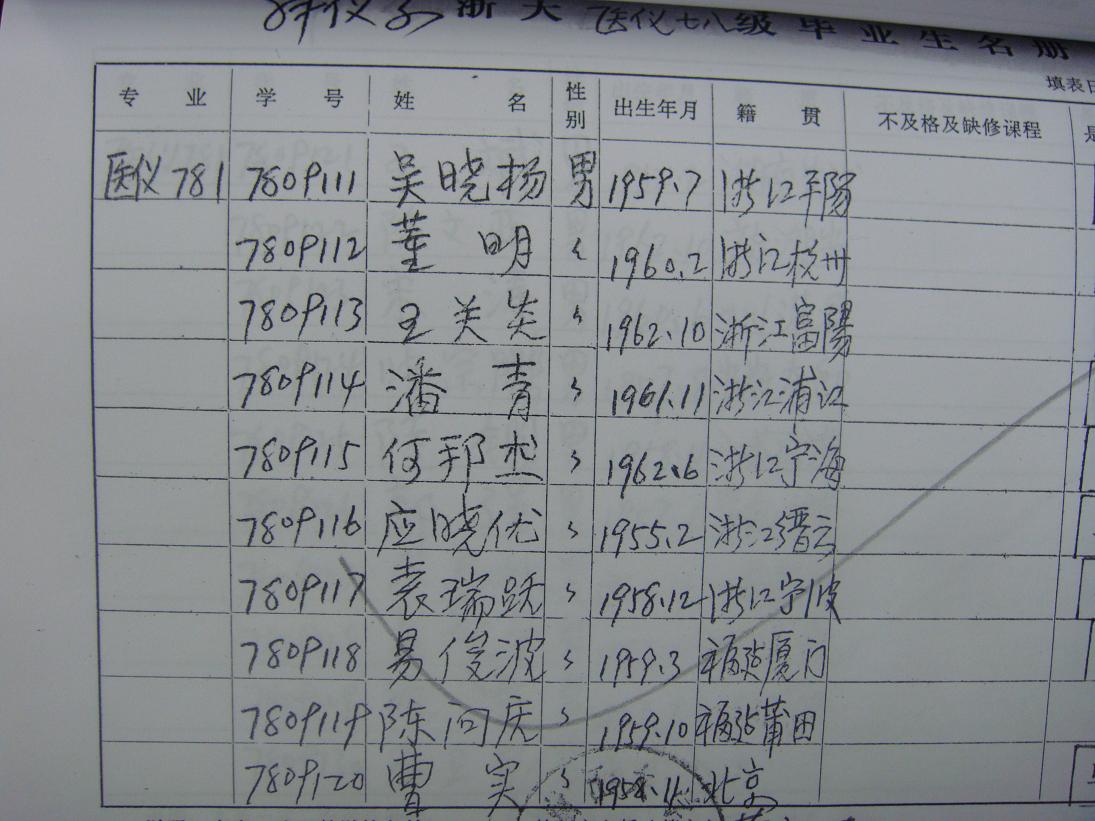 浙大 医仪七八级毕业生名册
填表日
专业 学号 姓名 性别 出生年月 籍贯 不及格及缺修课程
医仪781 7809111 吴晓杨 男 1959.7 浙江平陽
7809112 董明 〃 1960.2 浙江杭州
7809113 王关炎 〃 1962.10 浙江富陽
7809114 潘青 〃 1961.11 浙江浦江
7809115 何邦杰 〃 1962.6 浙江宁海
7809116 应晓优 〃 1955.2 浙江缙云
7809117 袁瑞跃 〃 1958.12 浙江宁波
7809118 易俊波 〃 1959.3 福建厦门
7809119 陈问庆 〃 1959.10 福建莆田
7809120 曹实 〃 1958.11 北京